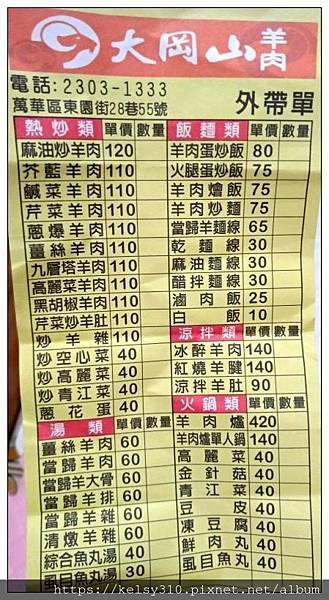 大岡山羊肉
電話:2303-1333
萬華區東園街28巷55號
外帶單
熱炒類 單價 數量
麻油炒羊肉 120
芥藍羊肉 110
鹹菜羊肉 110
芹菜羊肉 110
蔥爆羊肉 110
薑絲羊肉 110
九層塔羊肉 110
高麗菜羊肉 110
黑胡椒羊肉 110
芹菜炒羊肚 110
炒羊雜 110
炒空心菜 40
炒高麗菜 40
炒青江菜 40
蔥花蛋 40
湯類 單價 數量
薑絲羊肉 60
當歸羊肉 60
當歸羊大骨 60
當歸羊排 60
當歸羊雜 60
清燉羊雜 60
綜合魚丸湯 40
虱目魚丸湯 30
飯麵類 單價 數量
羊肉蛋炒飯 80
火腿蛋炒飯 75
羊肉燴飯 75
羊肉炒麵 75
當歸羊麵線 65
乾麵線 30
麻油麵線 30
醋拌麵線 30
滷肉飯 25
白飯 10
涼拌類 單價 數量
冰醉羊肉 140
紅燒羊腱 140
涼拌羊肚 90
火鍋類 單價 數量
羊肉爐 420
羊肉爐單人鍋 140
高麗菜 40
金針菇 40
青江菜 40
豆皮 40
凍豆腐 40
鮮肉丸 40
虱目魚丸 40
https://kelsy310.pixnet.net/album